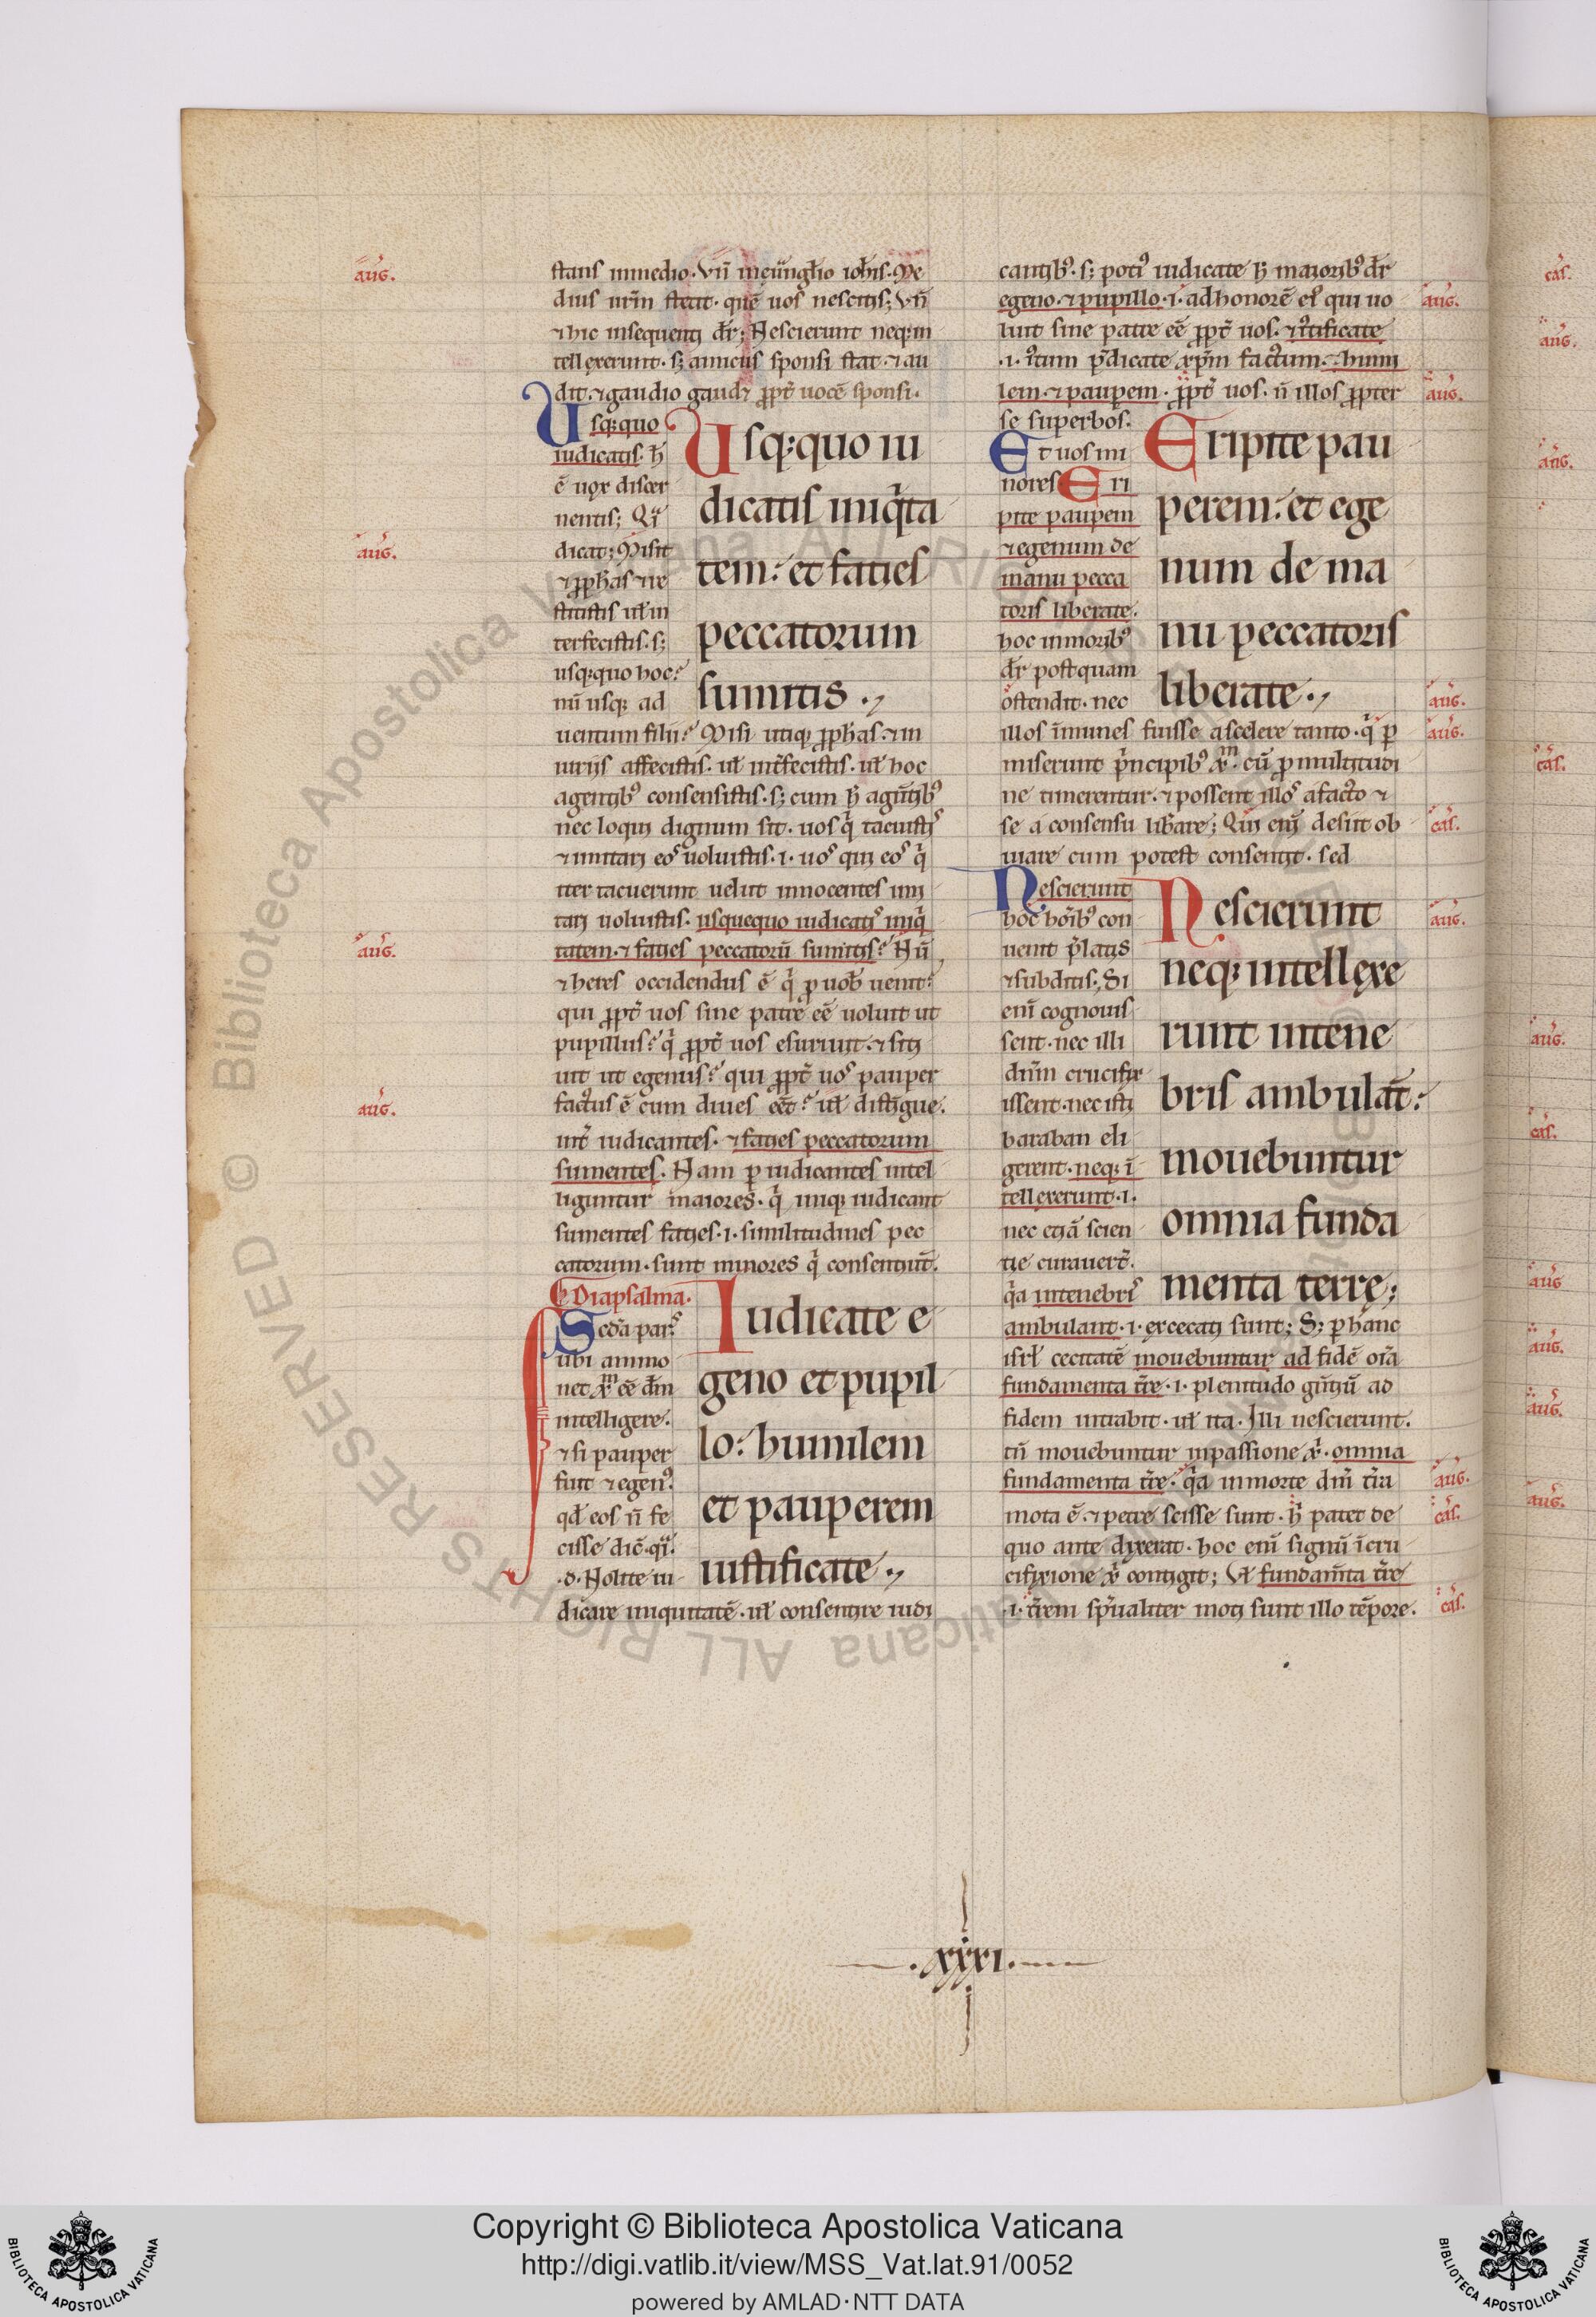 stans in medio. Vn̄ in eu̅ngłio ioħis. Me
dius ur̄m stetit. quē uos nescitis; Vn̄
⁊ hic in sequenti dr̄; Nescierunt neq; in
tellexerunt. s; amicus sponsi stat ⁊ au
dit. ⁊ gaudio gaudet ꝓpt̄ uocē sponsi.
Usq;quo
iudicatis. ħ
ē uox discer
nentis; Qͥ
dicat; Misit
⁊ ꝓpħas ⁊ re
stitistis uł in
terfecistis. s;
usq;quo hoc?
nū usq; ad
Usq;quo iu
dicatis iniqͥta
tem: et faties
peccatorum
sumitis.,
uentum filii? Misi utiq; ꝓpħas ⁊ in
iuriis affecistis. uł int̄fecistis. uł hoc
agentibꝰ consensistis. s; cum ħ agūtibꝰ
nec loqui dignum sit. uos qͥ tacuistis
⁊ imitari eos uoluistis. i. uos qui eos qͥ
iter tacuerunt uelut innocentes imi
tari uoluistis. usquequo iudicatis iniqͥ
tatem. ⁊ faties peccatorū sumitis? Nū
⁊ heres occidendus ē qͥ ꝓ uob̄ uenit?
qui ꝓpt̄ uos sine patre eē uoluit ut
pupillus? qͥ ꝓpt̄ uos esuriuit. ⁊ siti
uit ut egenus? qui ꝓpt̄ uos pauper
factus ē cum diues eēt? uł distīgue.
int̄ iudicantes. ⁊ faties peccatorum
sumentes. Nam ꝑ iudicantes intel
liguntur maiores. qͥ iniq; iudicant
sumentes faties. i. similitudines pec
catorum. sunt minores qͥ consentiūt.
Diapsalma.
Scđa pars
ubi ammo
net xp̄m eē dm̄
intelligere.
⁊ si pauper
fuit ⁊ egenꝰ.
qđ eos n̄ fe
cisse dic̄. qͣ.
.d. Nolite iu
Iudicate e
geno et pupil
lo: humilem
et pauperem
iustificate.,
dicare iniquitatē. uł consentire iudi
cantibꝰ. s; potiꝰ iudicate ħ maioribꝰ dr̄
egeno. ⁊ pupillo. i. ad honorē eiꝰ qui uo
luit sine patre eē ꝓpt̄ uos. ⁊ iꝰtificate
.i. iꝰtum p̄dicate xp̄m factum. humi
lem. ⁊ pauperem. ꝓpt̄ uos. n̄ illos ꝓpter
se superbos.
Et uos mi
nores Eri
pite paupem
⁊ egenum de
manu pecca
toris liberate.
hoc in moribꝰ
dr̄ postquam
ostendit. nec
Eripite pau
perem: et ege
num de ma
nu peccatoris
liberate.,
illos īmunes fuisse a scelere tanto. qͥ ꝑ
miserunt pͥncipibꝰ xp̄m. cū ꝓ multitudi
ne timerentur. ⁊ possent illos a facto ⁊
se a consensu lib̄are; Qui enī desiit ob
uiare cum potest consentit. sed
Nescierunt
hoc hoīb; con
uenit p̄latis
⁊ subditis; Si
enī cognouis
sent. nec illi
dn̄m crucifix
issent. nec isti
baraban eli
gerent. neq; ī
tellexerunt. i.
nec etiā scien
tie curauert̄.
qͥa in tenebris
Nescierunt
neq; intellexe
runt in tene
bris ambulāt:
mouebuntur
omnia funda
menta terre;
ambulant. i. excecati sunt; S; ꝑ hanc
isrł cecitatē mouebuntur ad fidē oīa
fundamenta tr̄e. i. plenitudo gn̄tiū ad
fidem intrabit. uł ita. Illi nescierunt.
tn̄ mouebuntur in passione xpͥ. omnia
fundamenta tr̄e. qͥa in morte dn̄i tr̄a
mota ē. ⁊ petre scisse sunt. ħ patet de
quo ante dixerat. hoc enī signū ī cru
cifixione xpͥ contigit; Vł fundam̄ta tr̄e
.i. tr̄rem spūaliter moti sunt illo tēpore.
aug.
aug.
aug.
aug.
aug.
aug.
aug.
aug.
cas.
aug.
aug.
cas.
cas.
.xxxi.
cas.
aug.
aug.
cas.
aug.
cas.
aug.
aug.
aug.
aug.
© Biblioteca Apostolica Vaticana ALL RIGHTS RESERVED
Copyright © Biblioteca Apostolica Vaticana
http://digi.vatlib.it/view/MSS_Vat.lat.91/0052
powered by AMLAD·NTT DATA
BIBLIOTECA APOSTOLICA VATICANA
BIBLIOTECA APOSTOLICA VATICANA